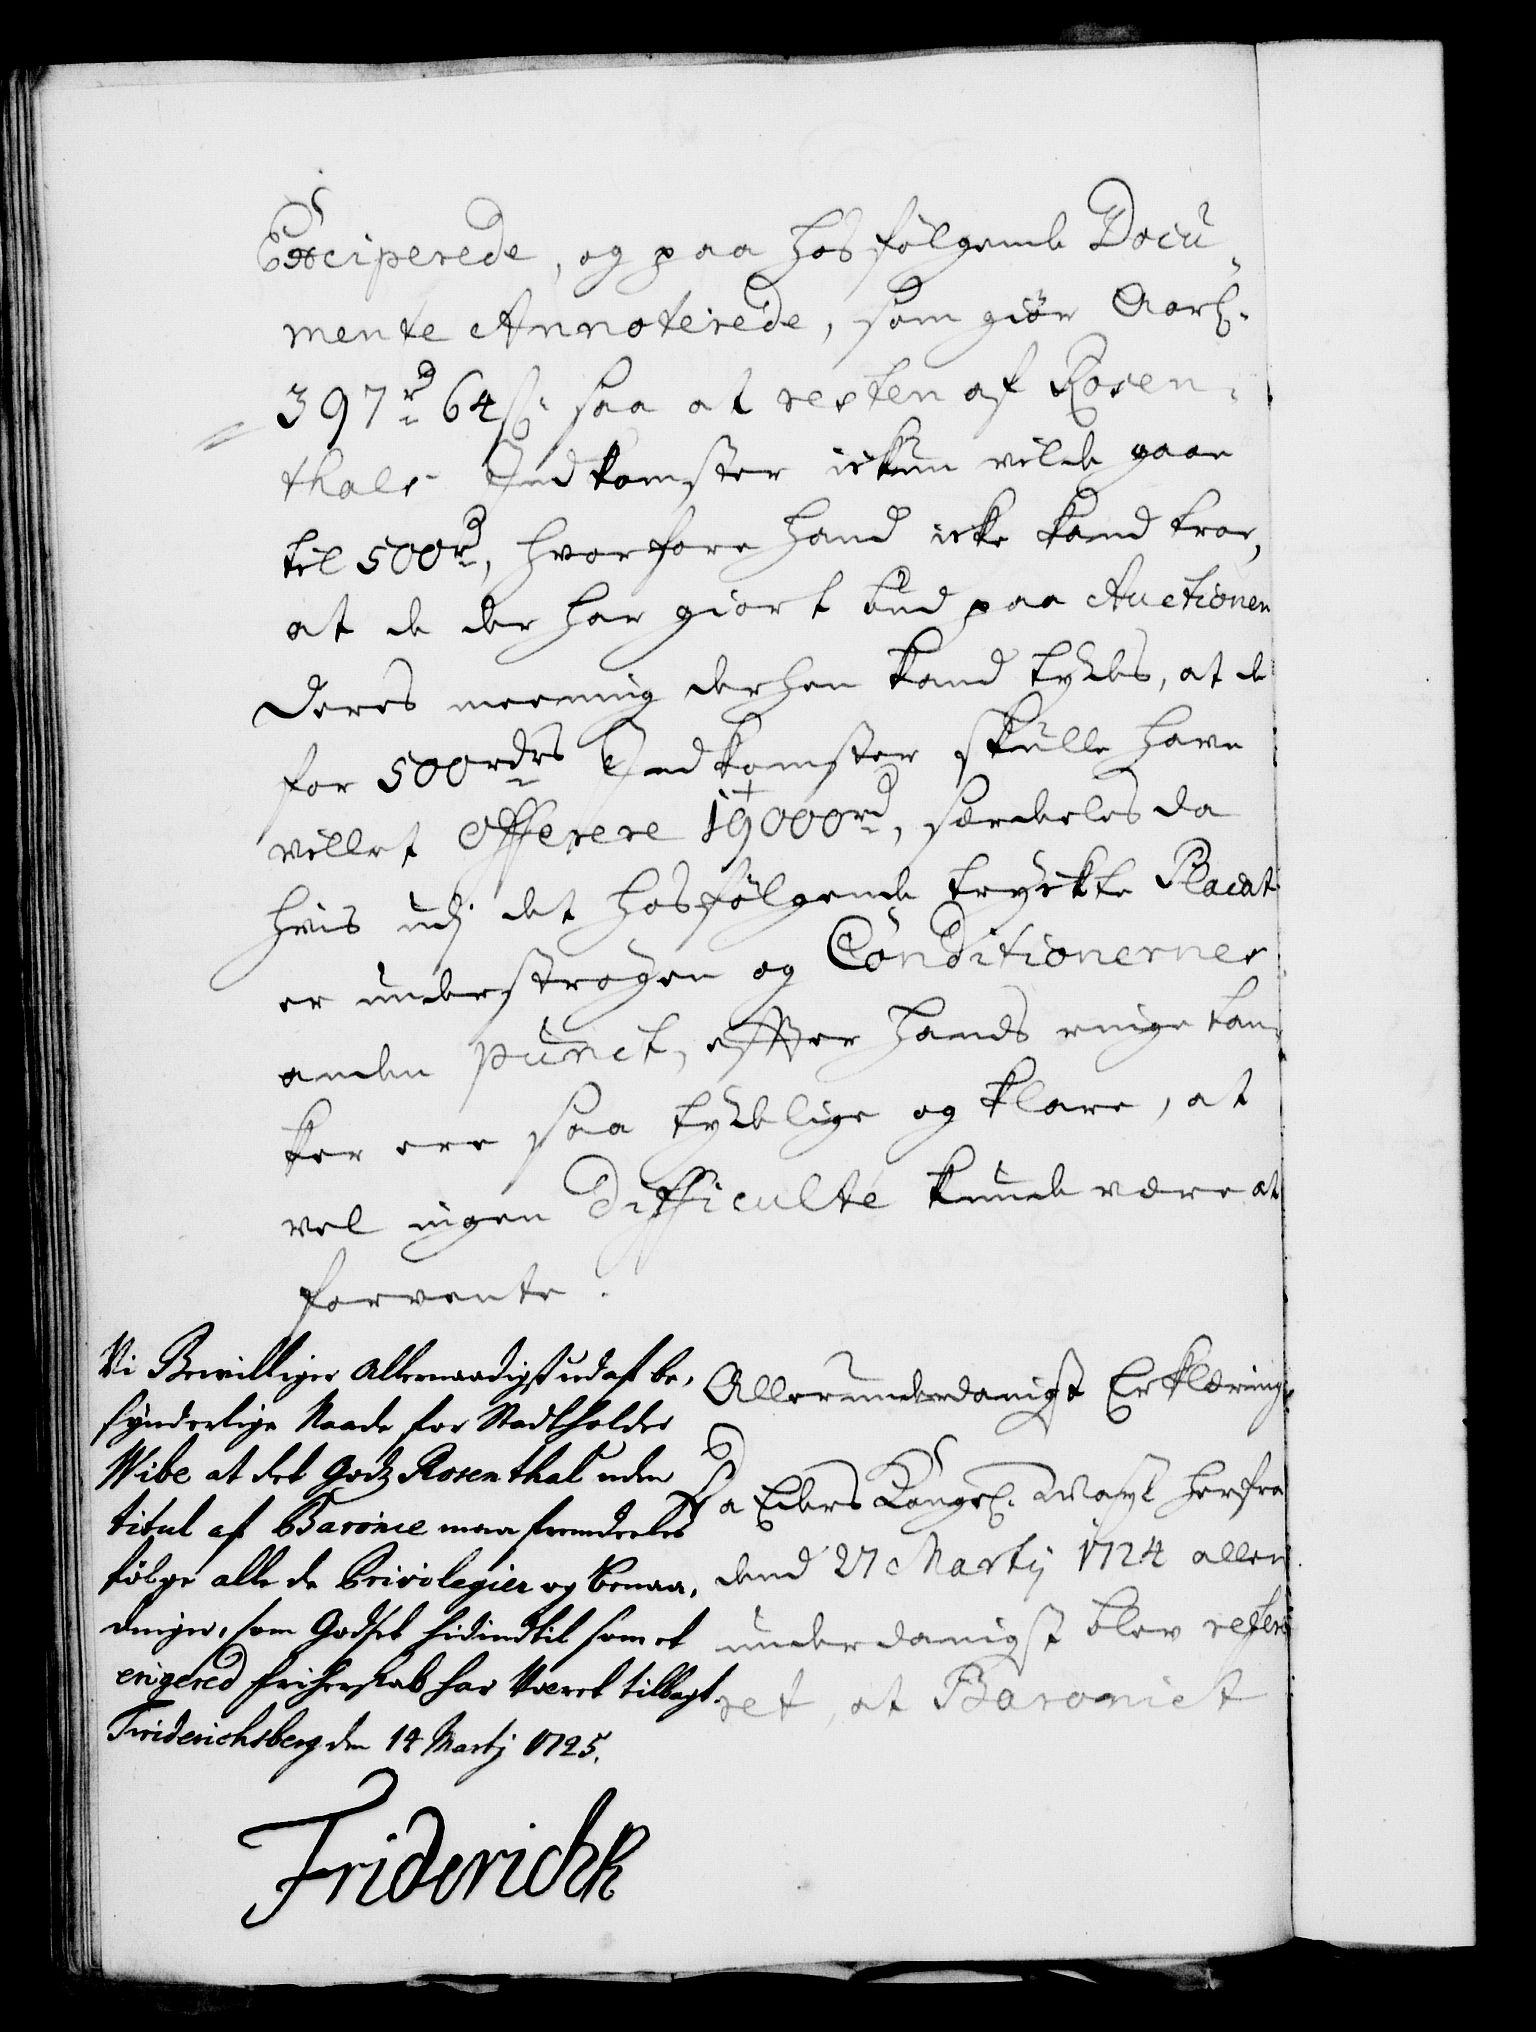 Exciperede, og paa hosfølgende Docu-
mente Annoterede, som giør Aarl.
397 rd 64 ß. saa at resten af Rosen-
thals Indkomster ickun vilde gaae
til 500 rd, hvorfore hand icke kand troe,
at de der har giort bud paa Auctionen
Deres meening derhen kand tydes, at de
for 500 rdrs Indkomster skulle have
villet offerere 19000 rd, særdeles da
hvis udj det hosfølgende tryckte Placat
er understregen og Conditionernes
anden punct, efter hands ringe tan-
ker ere saa tydelige og klare, at
vel ingen Difficulté kunde være at
forvente.
Vi Bewilliger Allernaadigst udaf be-
synderlige Naade for Stadtholder
Wibe at det Godz Rosenthal uden
titul af Baronie maa fremdeeles
følge alle de Privilegier og benaa-
dninger, som Godset hidindtil som et
erigered friherskab har Været tillagt.
Friderichsberg den 14 Martj 1725.
Friderich R
Allerunderdanigst Erklæring.
Da Eders Kongel. Mayt herfra
dend 27 Martij 1724 aller-
underdanigst blev refere-
ret, at Baroniet